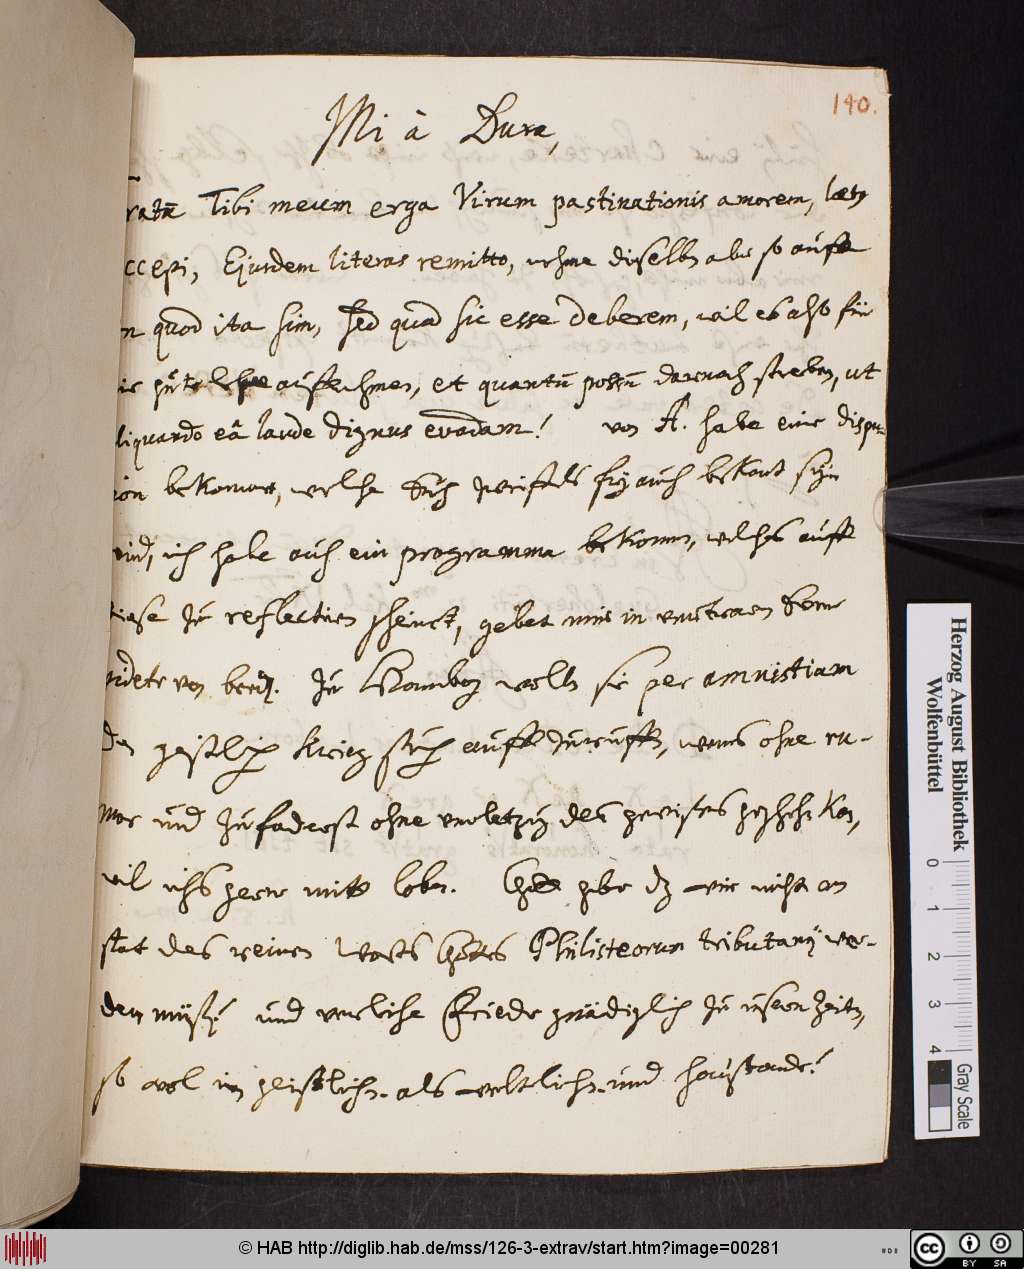 140.
Mi à Dura,
ratū Tibi meum erga Virum pastinationis amorem, læty
ccepi, Ejusdem literas remitto, nehme dieselbn aber so auff
n quod ita sim, sed quod sic esse deberem, wil es also für
gute auffnehmen, et quantū possū darnach streben, ut
liquando eâ laude dignus evadam! von A. habe eine dispu-
ion bekommen, welche Euch zweiffels frey auch bekant seyn
wird, ich habe auch ein programma bekomn, welches auff
diese zu reflectiren scheinet, gebet mir in
von beed. Zu Hamburg wolln sie per amnistiam
den geistlichen Krieg auff zuruffn, wenns ohne ru-
mor und zufoderst ohne verletzung des gewissens geschehen kan,
wil ichs gern mitt loben. Gott gebe dz wir nicht an
stat des reinen Worts Gottes Philisteorum tributarij wer-
den müssen! und verleihe Friede gnädiglich zu unsern Zeiten,
so wol im geistlichn- als weltlichn- und Haußstande!
Herzog August Bibliothek
Wolfenbüttel
0 1 2 3 4
Gray Scale
© HAB http://diglib.hab.de/mss/126-3-extrav/start.htm?image=00281
cc
BY SA